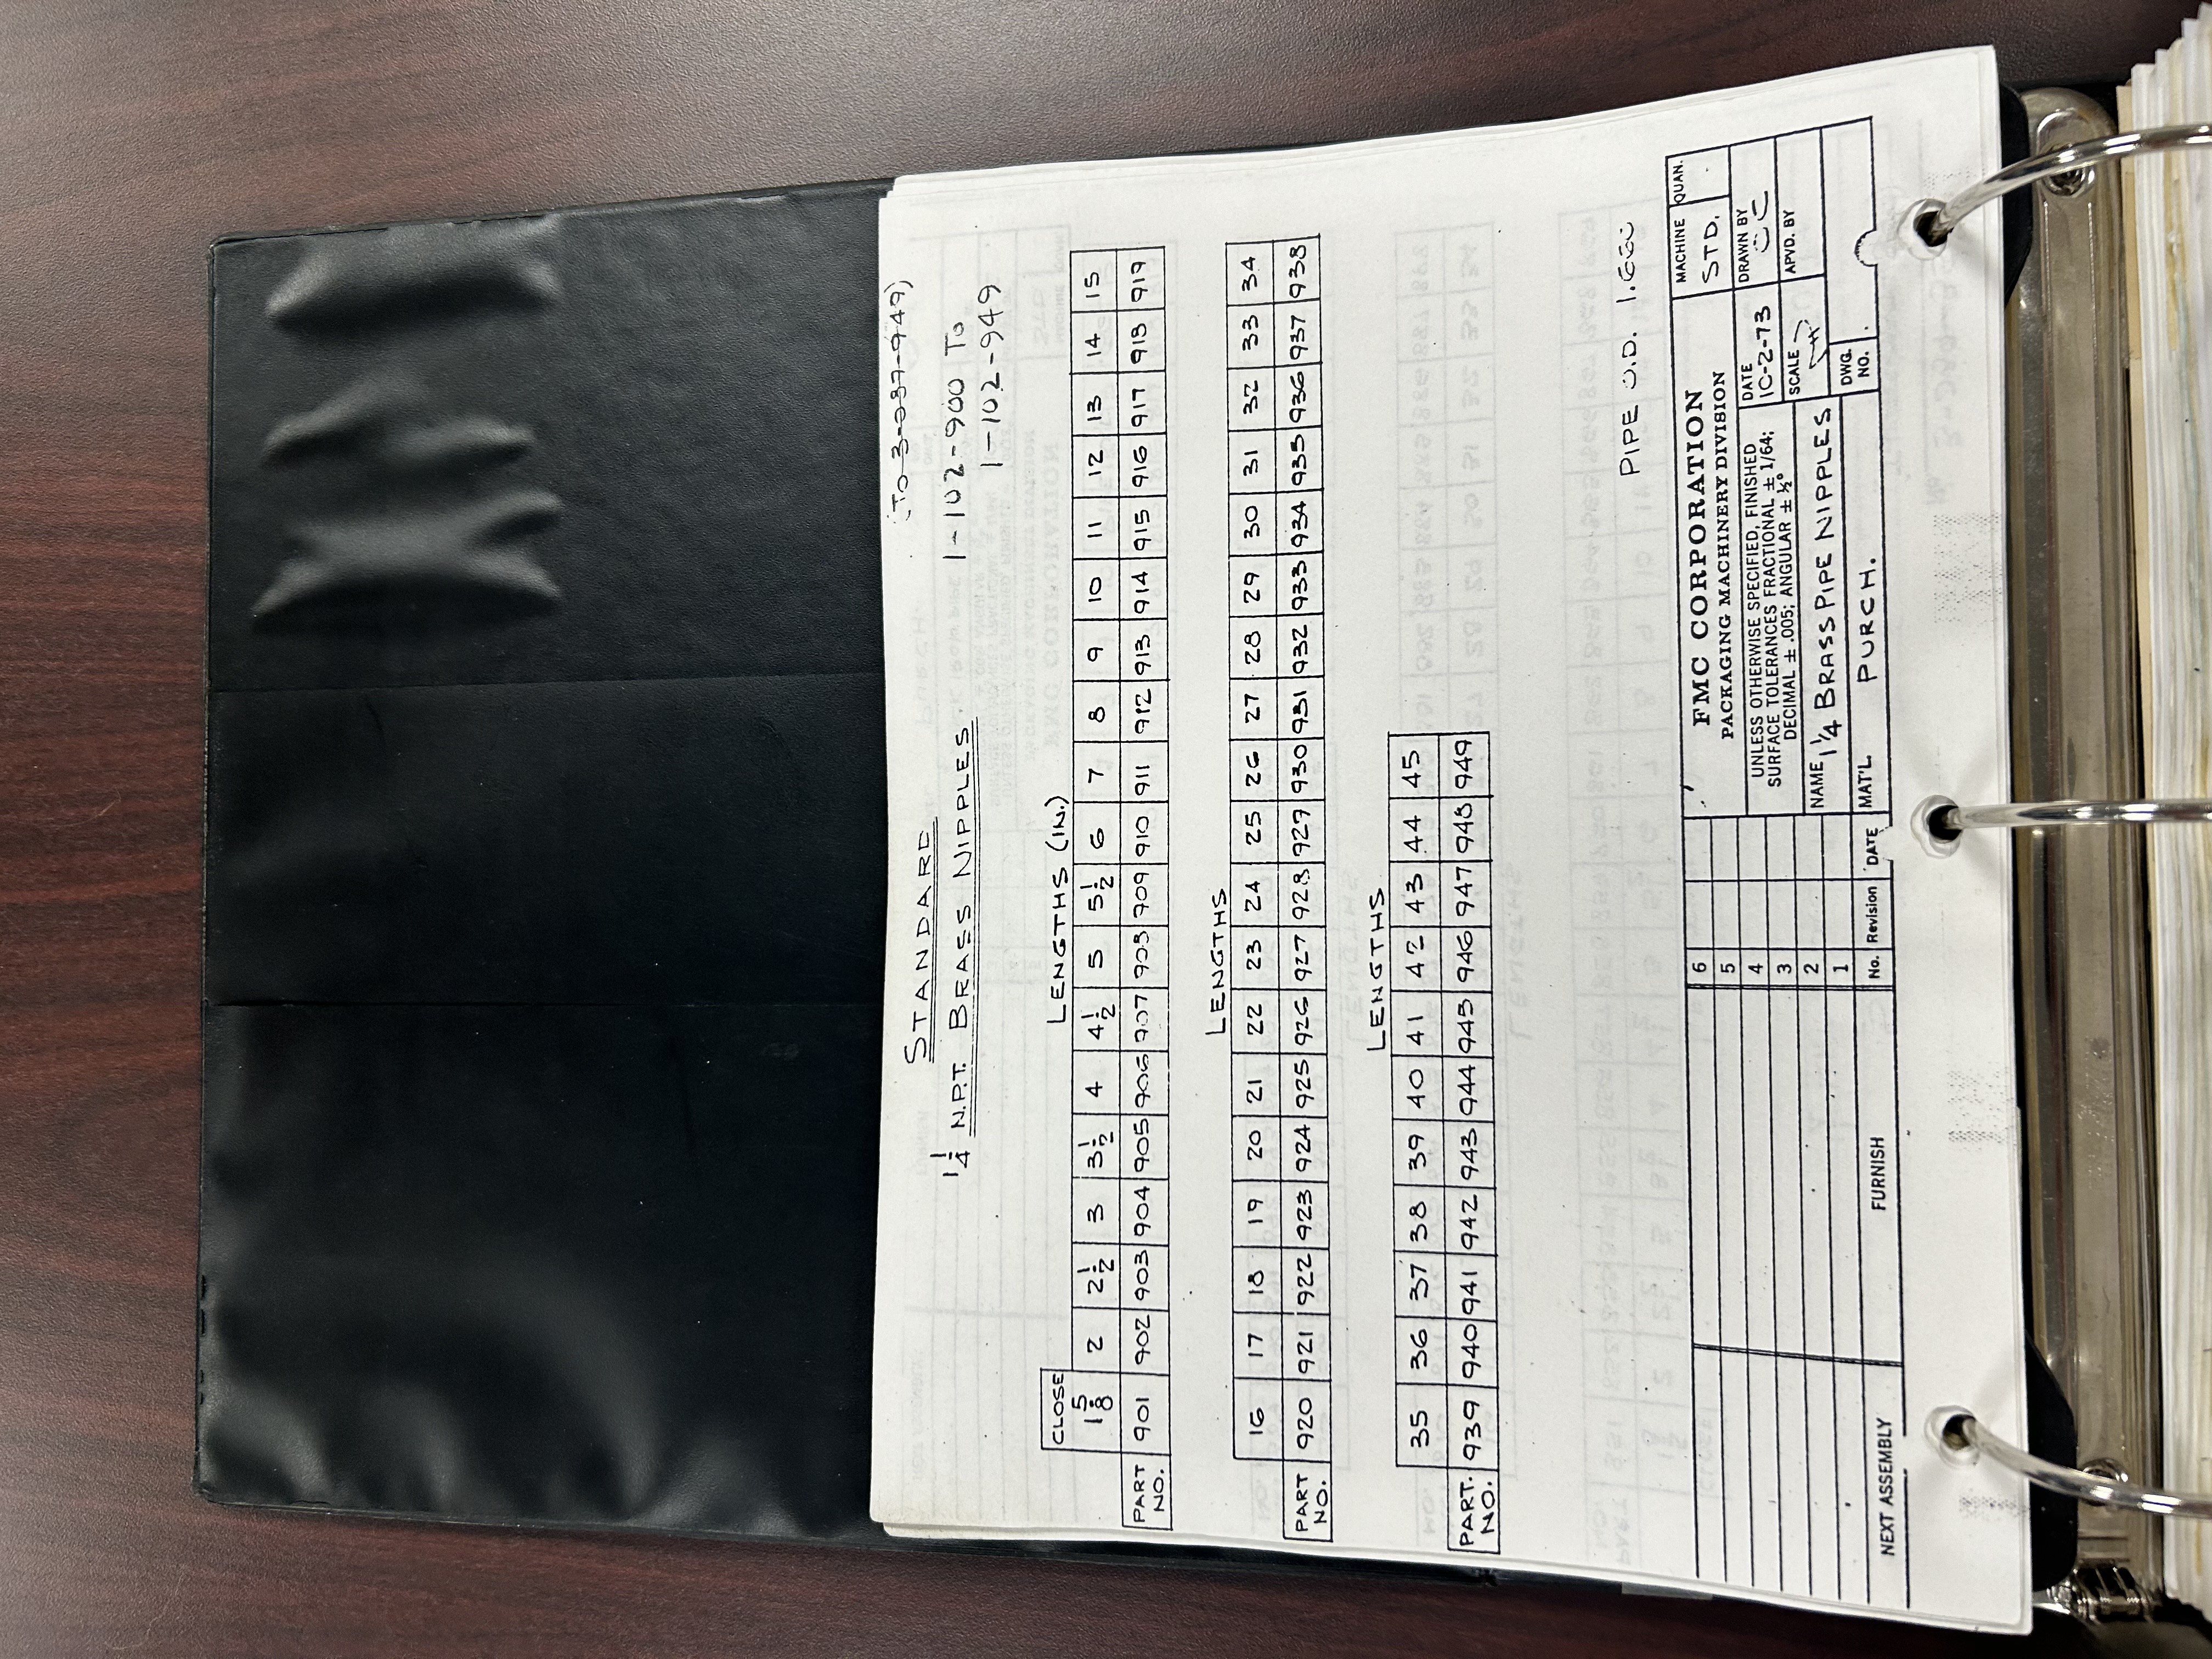 (TO 3-037-949)
STANDARD
1 1/4 N.P.T. BRASS NIPPLES
1-102-900 TO
1-102-949
CLOSE
LENGTHS (IN.)
1 5/8 2 2 1/2 3 3 1/2 4 4 1/2 5 5 1/2 6 7 8 9 10 11 12 13 14 15
PART NO. 901 902 903 904 905 906 907 908 909 910 911 912 913 914 915 916 917 918 919
LENGTHS
16 17 18 19 20 21 22 23 24 25 26 27 28 29 30 31 32 33 34
PART NO. 920 921 922 923 924 925 926 927 928 929 930 931 932 933 934 935 936 937 938
LENGTHS
35 36 37 38 39 40 41 42 43 44 45
PART. NO. 939 940 941 942 943 944 945 946 947 948 949
PIPE O.D. 1.660
6
5
4
3
2
1
No. Revision DATE
NEXT ASSEMBLY
FURNISH
FMC CORPORATION
PACKAGING MACHINERY DIVISION
MACHINE
STD.
QUAN.
UNLESS OTHERWISE SPECIFIED, FINISHED
SURFACE TOLERANCES FRACTIONAL ± 1/64;
DECIMAL ± .005; ANGULAR ± ½°
DATE
10-2-73
DRAWN BY
SCALE
APVD. BY
NAME 1 1/4 BRASS PIPE NIPPLES
MAT'L. PURCH.
DWG.
NO.